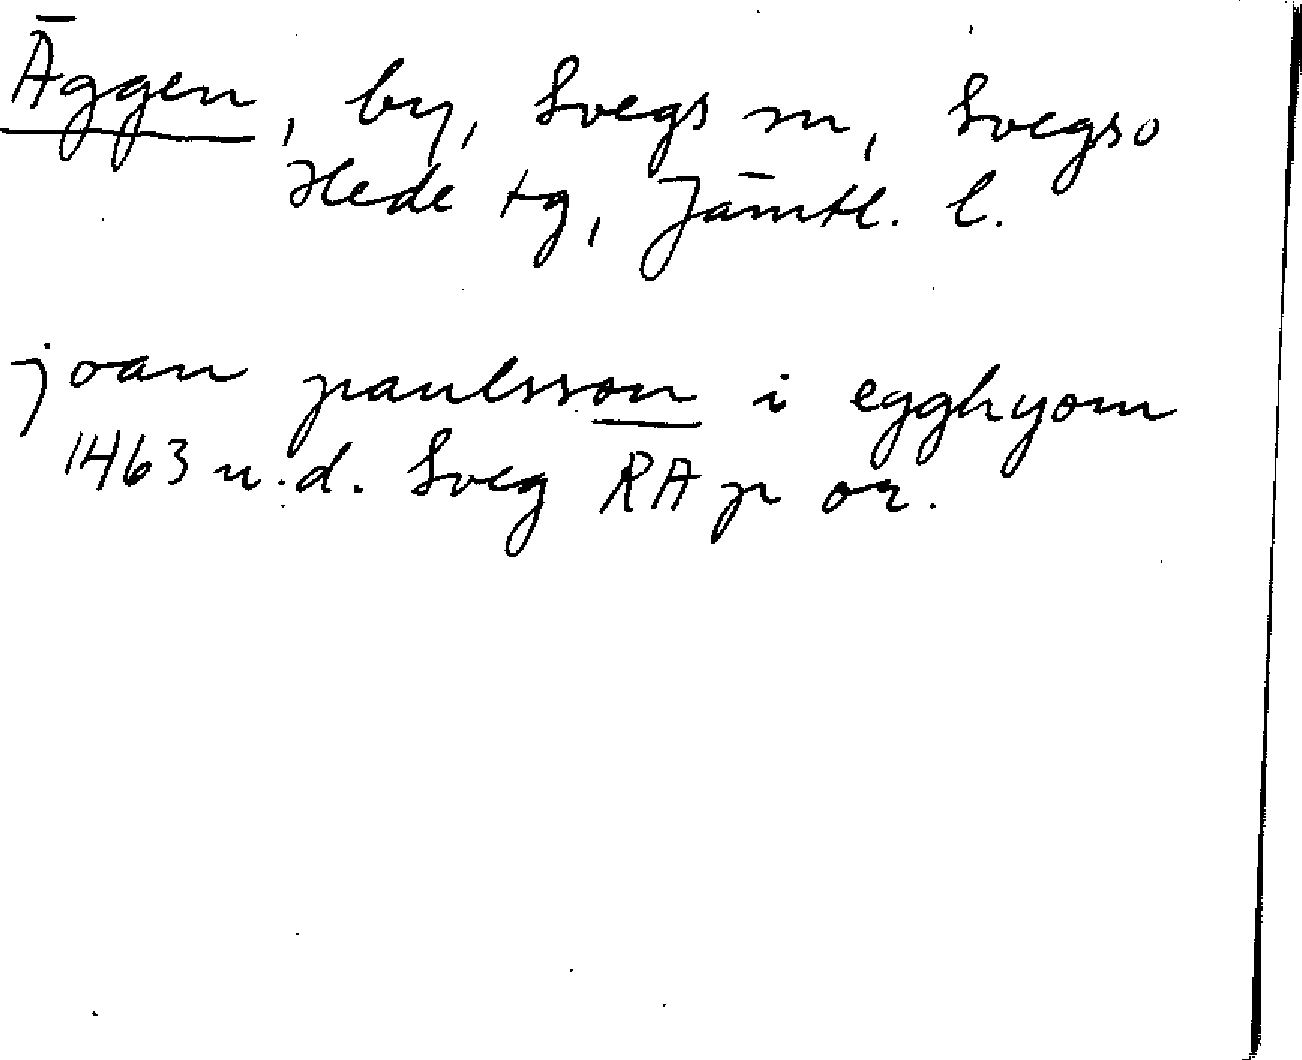 Äggen, by, Svegs m, Svegs o
Hede tg, Jämtl. l.
joan paulsson i egghyom
1463 u.d. Sveg RA p or.